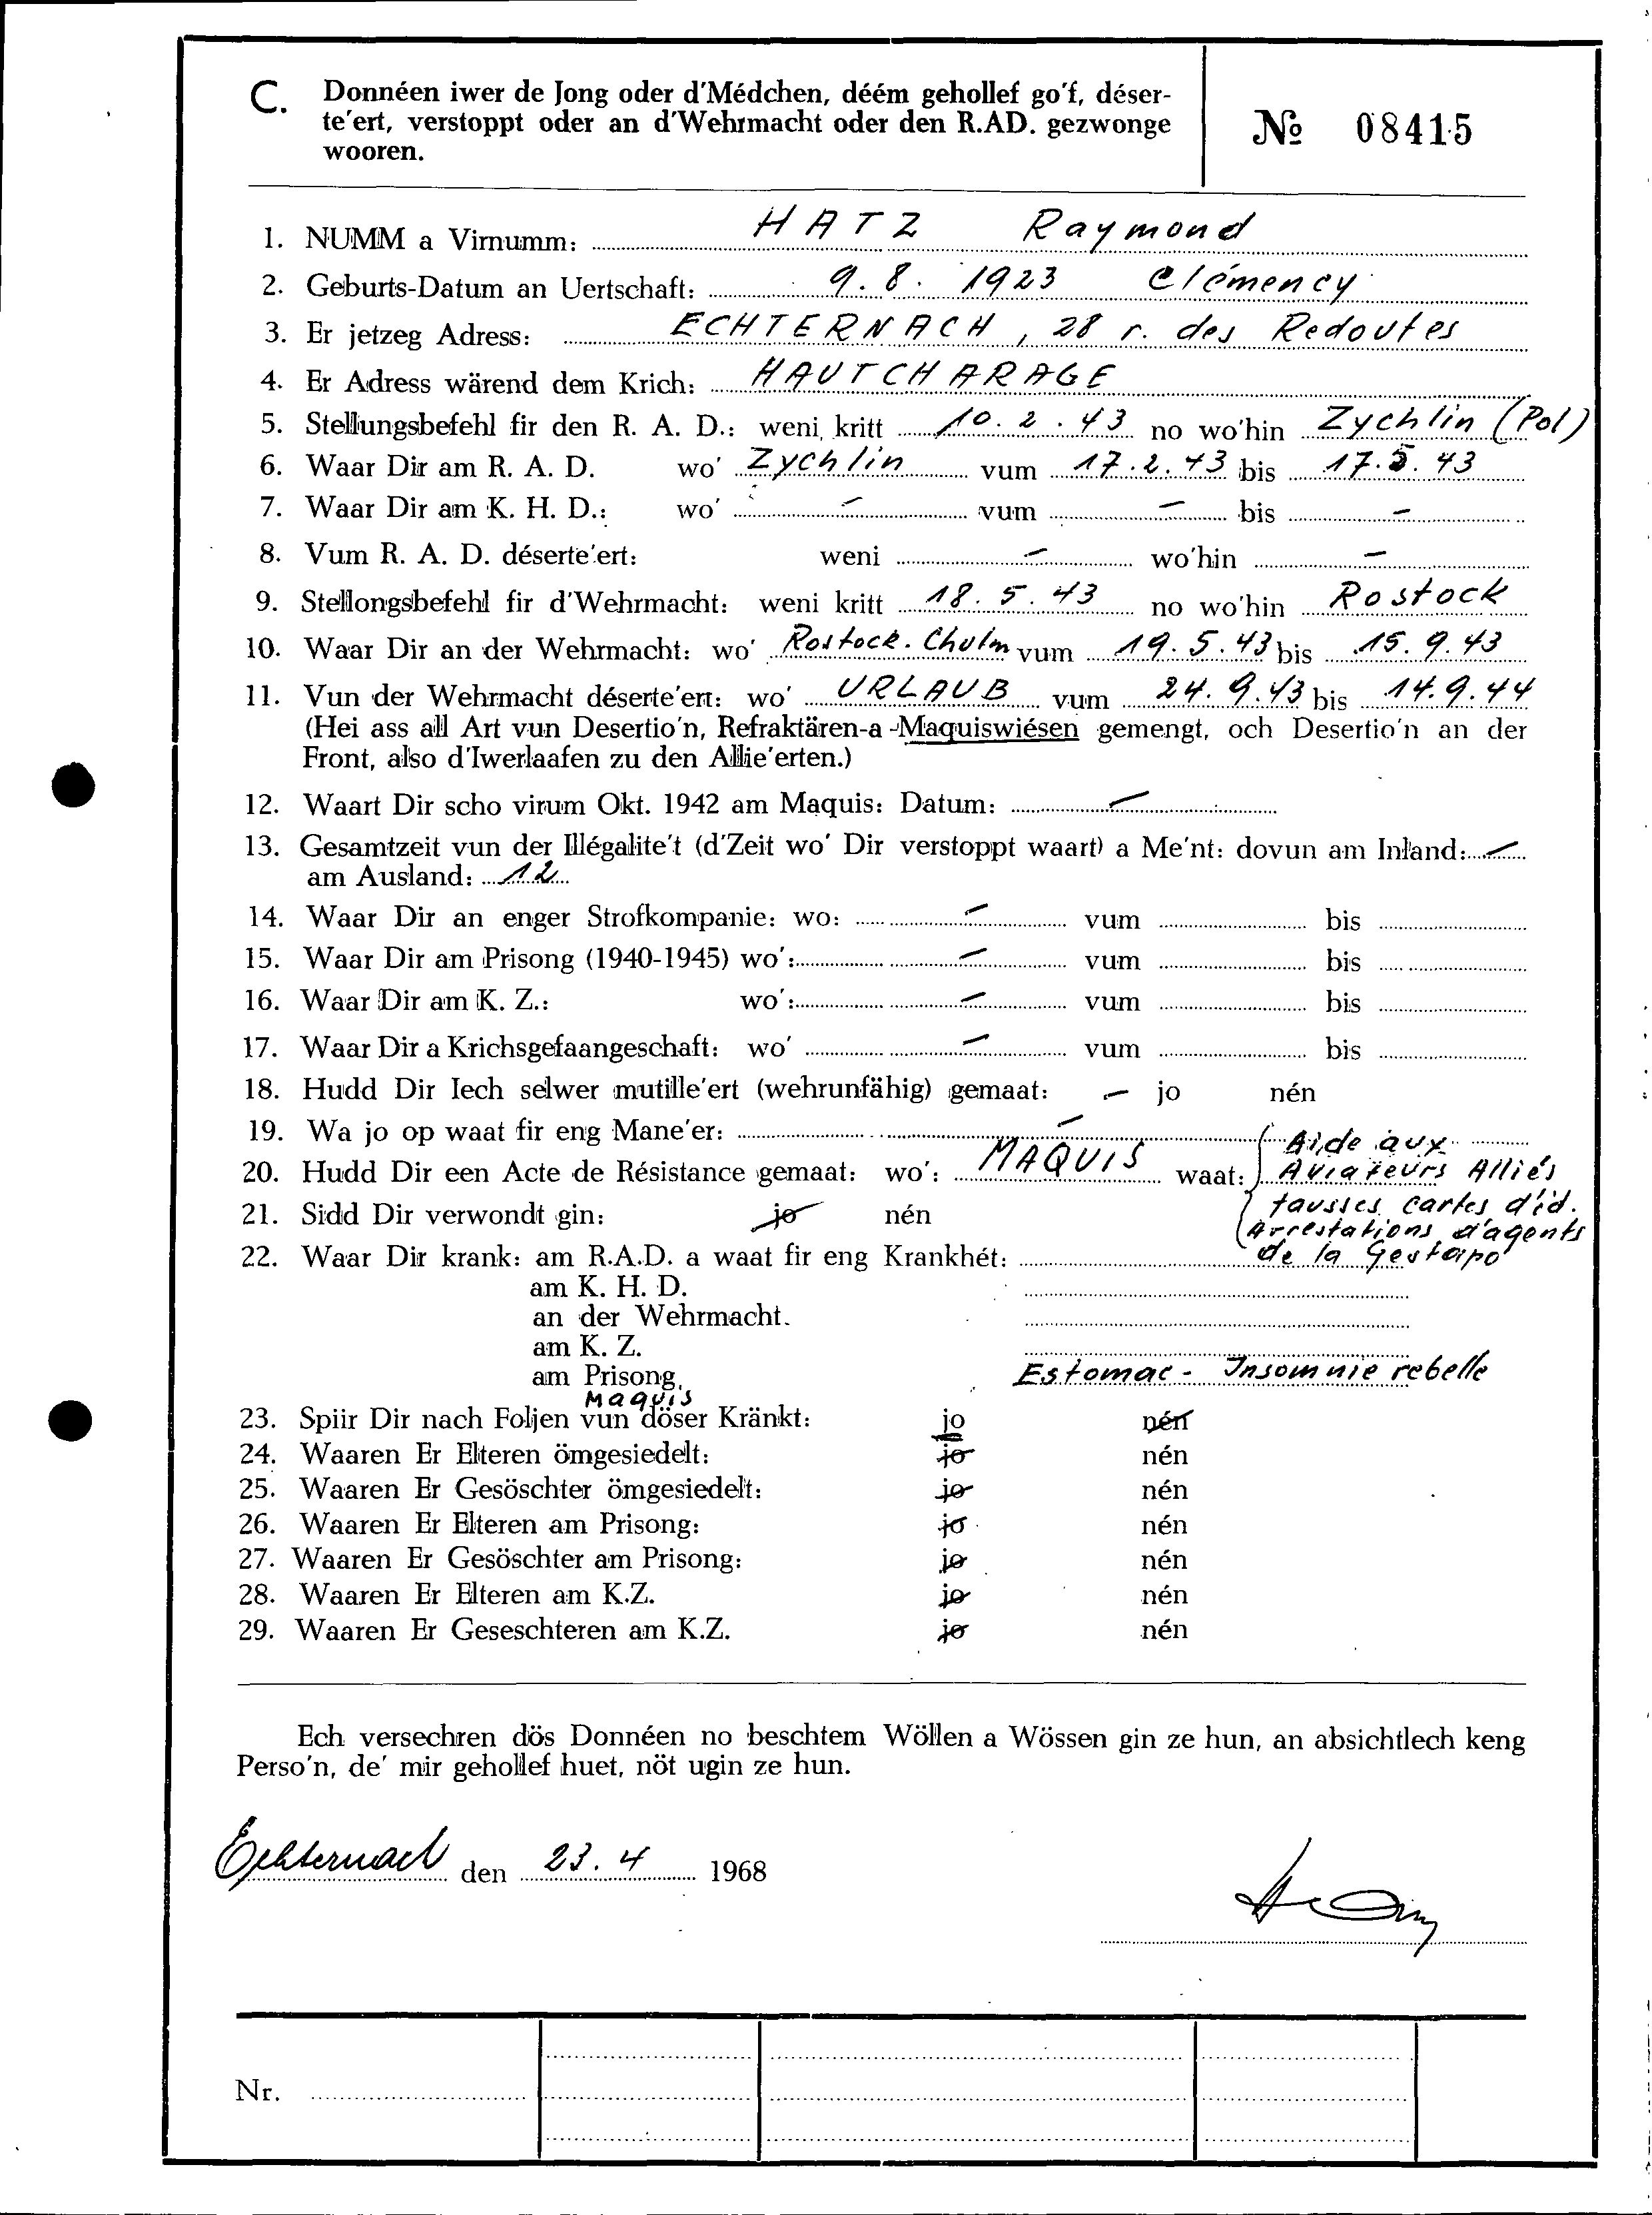 C. Donnéen iwer de Jong oder d'Médchen, déém gehollef go'f, déser-
te'ert, verstoppt oder an d'Wehrmacht oder den R.AD. gezwonge
wooren.
№ 08415
1. NUMM a Virnumm: HATZ Raymond
2. Geburts-Datum an Uertschaft: 9. 8. 1923 Clémency
3. Er jetzeg Adress: ECHTERNACH, 28 r. des Redoutes
4. Er Adress wärend dem Krich: HAUTCHARAGE
5. Stellungsbefehl fir den R. A. D.: weni kritt 10. 2. 43 no wo'hin Zychlin (Pol)
6. Waar Dir am R. A. D. wo' Zychlin vum 17. 2. 43 bis 17. 5. 43
7. Waar Dir am K. H. D.: wo' – vum – bis –
8. Vum R. A. D. déserte'ert: weni – wo'hin –
9. Stellongsbefehl fir d'Wehrmacht: weni kritt 18. 5. 43 no wo'hin Rostock
10. Waar Dir an der Wehrmacht: wo' Rostock. Chulm vum 19. 5. 43 bis 15. 9. 43
11. Vun der Wehrmacht déserte'ert: wo' URLAUB vum 24. 9. 43 bis 14. 9. 44
(Hei ass all Art vun Desertio'n, Refraktären-a -Maquiswiésen gemengt, och Desertio'n an der
Front, also d'Iwerlaafen zu den Allie'erten.)
12. Waart Dir scho virum Okt. 1942 am Maquis: Datum: –
13. Gesamtzeit vun der Illégalite't (d'Zeit wo' Dir verstoppt waart) a Me'nt: dovun am Inland: –
am Ausland: 12
14. Waar Dir an enger Strofkompanie: wo: – vum bis
15. Waar Dir am Prisong (1940-1945) wo': – vum bis
16. Waar Dir am K. Z.: wo': – vum bis
17. Waar Dir a Krichsgefaangeschaft: wo' – vum bis
18. Hudd Dir Iech selwer mutille'ert (wehrunfähig) gemaat: – jo nén
19. Wa jo op waat fir eng Mane'er: –
20. Hudd Dir een Acte de Résistance gemaat: wo': MAQUIS waat: Aide aux
Aviateurs Alliés
fausses cartes d'id.
Arrestations d'agents
de la Gestapo
21. Sidd Dir verwondt gin: jo nén
22. Waar Dir krank: am R.A.D. a waat fir eng Krankhét:
am K. H. D.
an der Wehrmacht.
am K. Z.
am Prisong. Estomac - Insomnie rebelle
Maquis
23. Spiir Dir nach Foljen vun döser Kränkt: jo nén
24. Waaren Er Elteren ömgesiedelt: jo nén
25. Waaren Er Gesöschter ömgesiedelt: jo nén
26. Waaren Er Elteren am Prisong: jo nén
27. Waaren Er Gesöschter am Prisong: jo nén
28. Waaren Er Elteren am K.Z. jo nén
29. Waaren Er Geseschteren am K.Z. jo nén
Ech versechren dös Donnéen no beschtem Wöllen a Wössen gin ze hun, an absichtlech keng
Perso'n, de' mir gehollef huet, nöt ugin ze hun.
Echternach den 23. 4 1968
Nr.